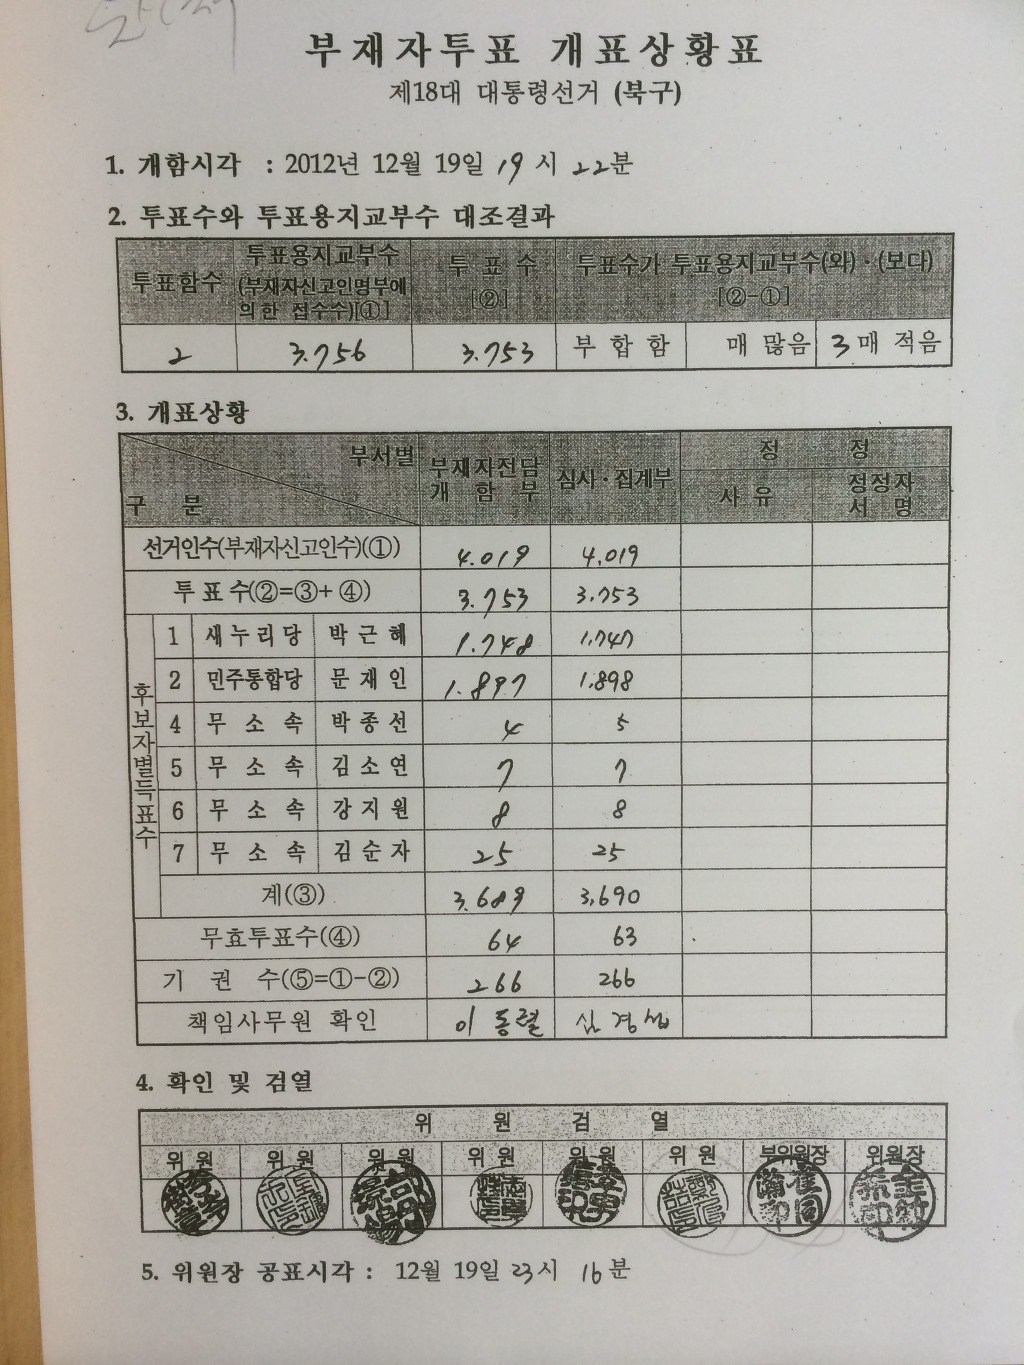 부재자투표 개표상황표
제18대 대통령선거 (북구)
1. 개함시각 : 2012년 12월 19일 19시 22분
2. 투표수와 투표용지교부수 대조결과
투표함수 투표용지교부수 (부재자신고인명부에 의한 접수수)[①] 투표수 [②] 투표수가 투표용지교부수(와)·(보다) [②-①]
2 3.756 3.753 부합함 매 많음 3매 적음
3. 개표상황
구분 부서별 부재자전담 개함부 심사·집계부 정정
사유 정정자 서명
선거인수(부재자신고인수)(①) 4.019 4,019
투표수(②=③+④) 3.753 3.753
후보자별득표수
1 새누리당 박근혜 1.748 1.747
2 민주통합당 문재인 1.897 1,898
4 무소속 박종선 4 5
5 무소속 김소연 7 7
6 무소속 강지원 8 8
7 무소속 김순자 25 25
계(③) 3.689 3,690
무효투표수(④) 64 63
기권수(⑤=①-②) 266 266
책임사무원 확인 이동렬
4. 확인 및 검열
위원검열
위원 위원 위원 위원 위원 위원 부위원장 위원장
5. 위원장 공표시각 : 12월 19일 23시 16분